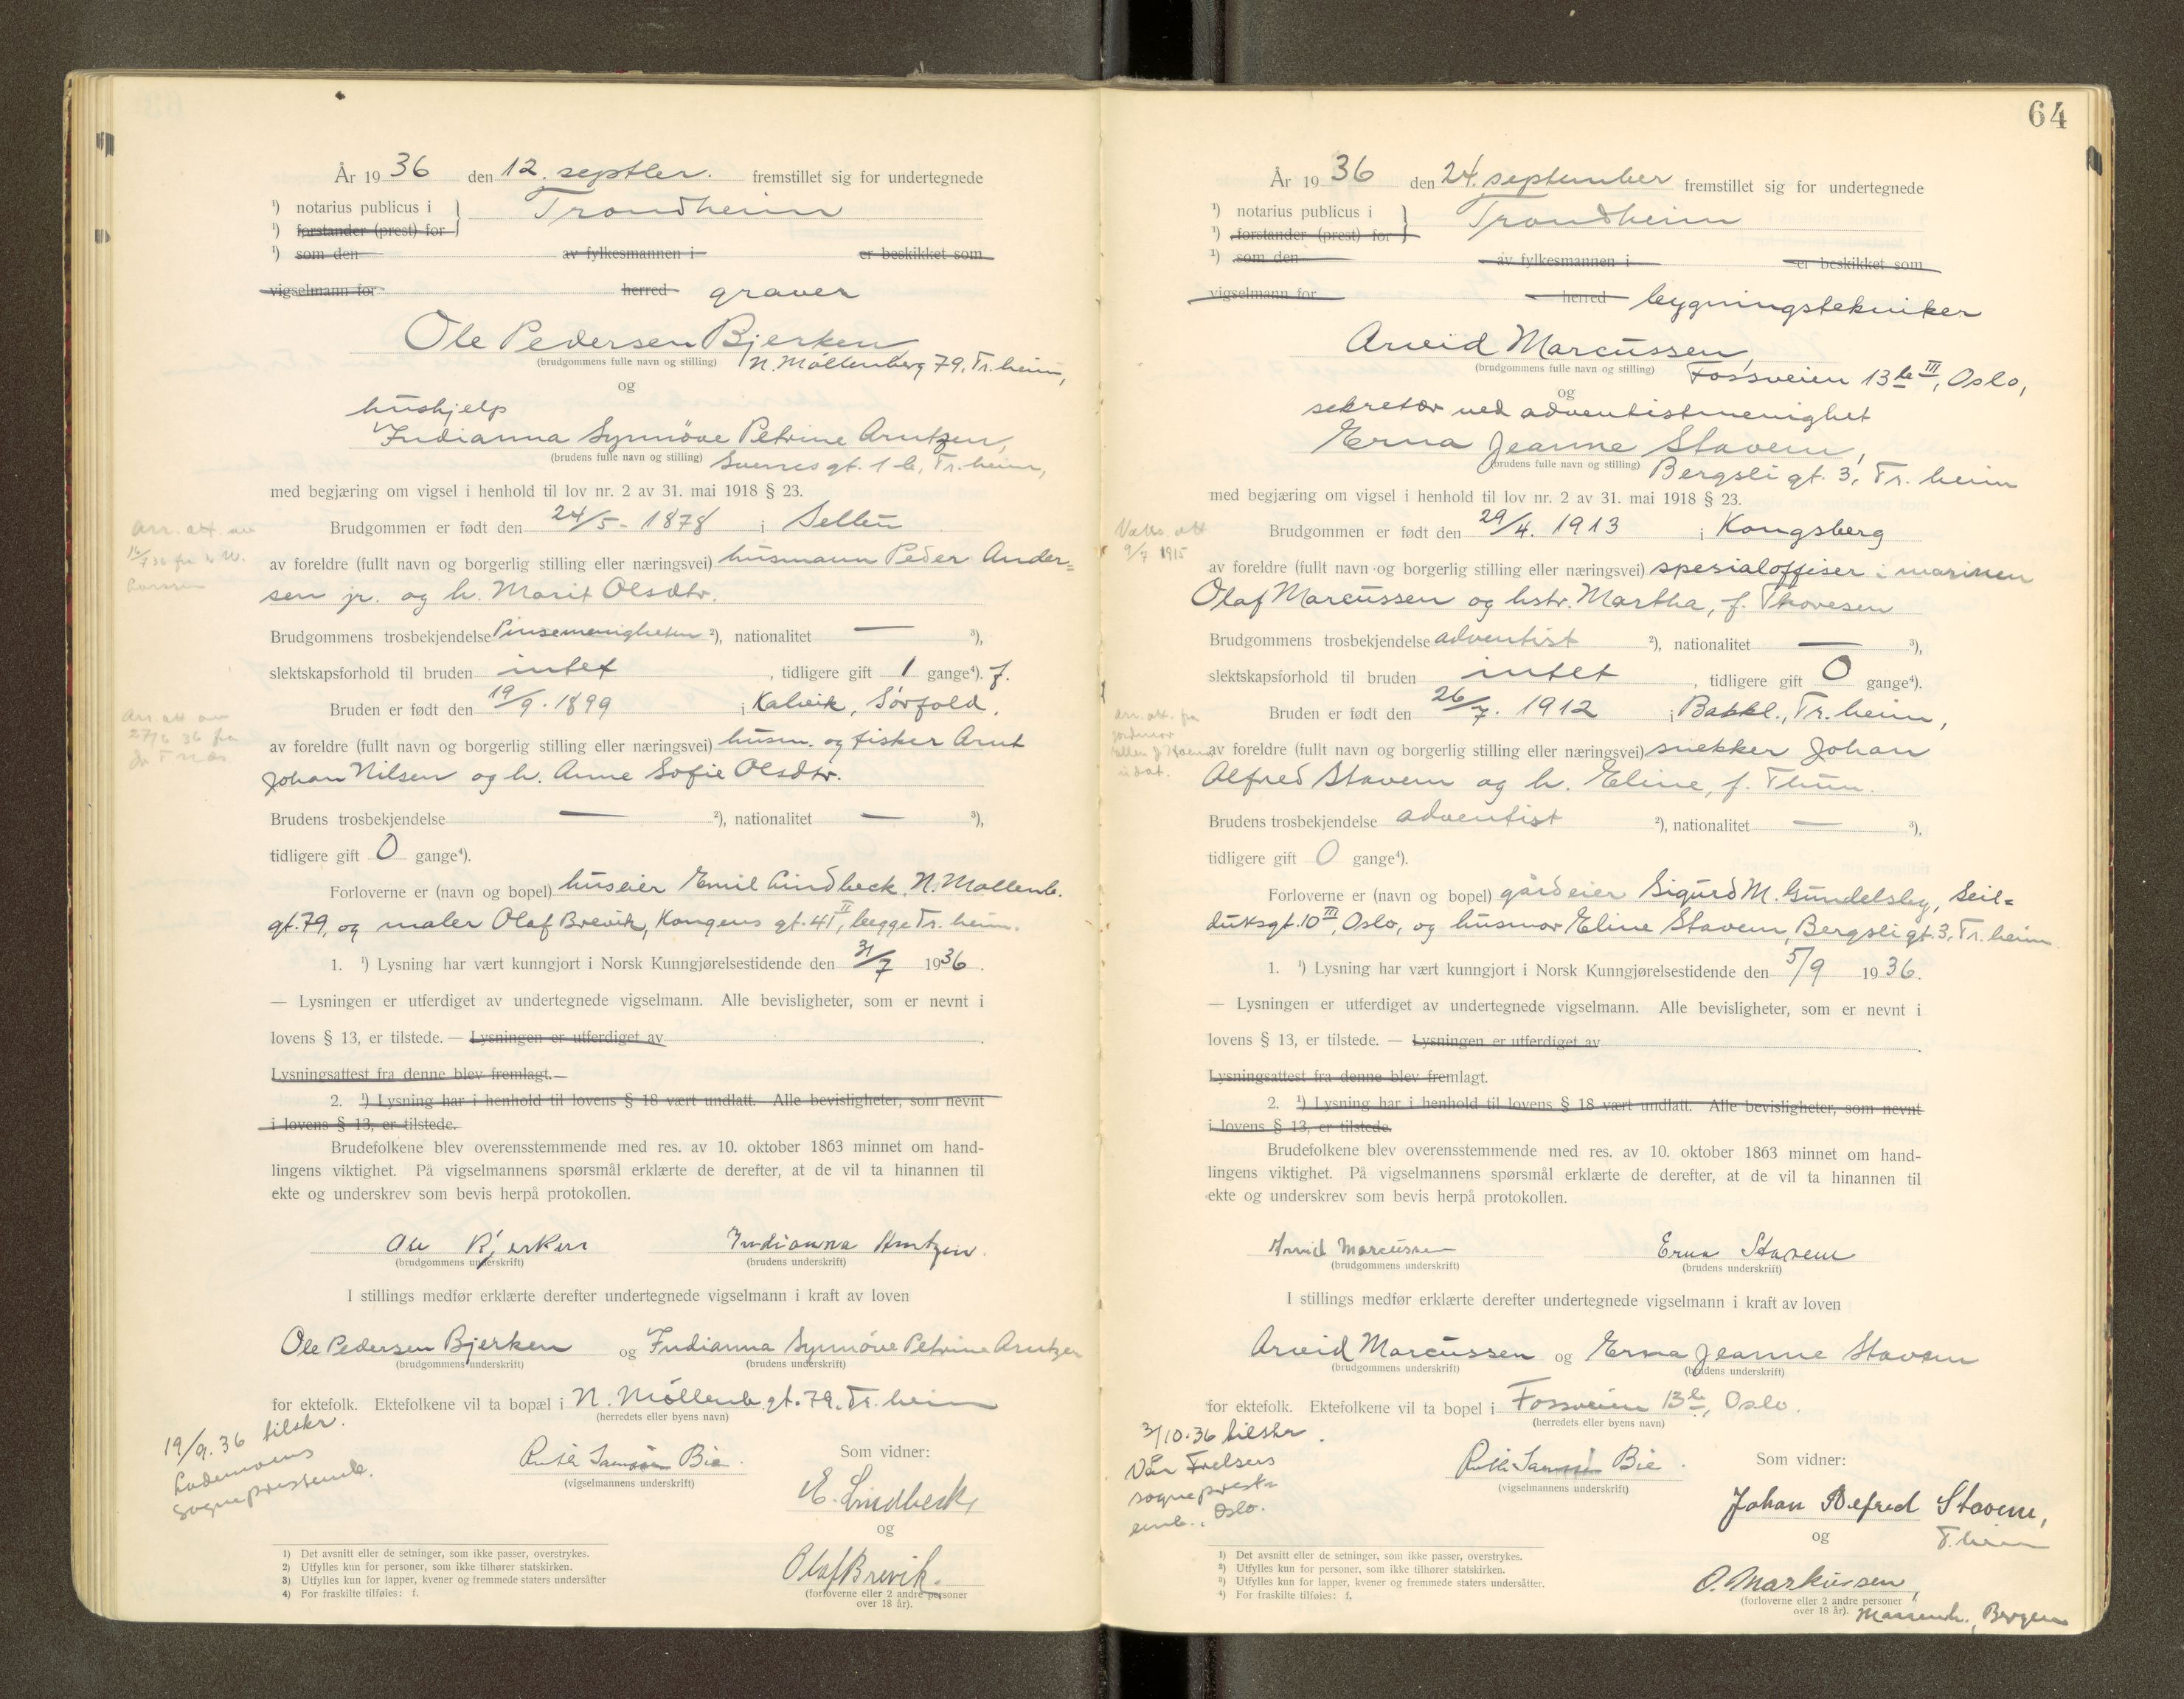 År 1936 den 12. septbr. fremstillet sig for undertegnede
¹) notarius publicus i
Trondheim
¹) forstander (prest) for
¹) som den av fylkesmannen i er beskikket som
vigselmann for herred graver
Ole Pedersen Bjerken
(brudgommens fulle navn og stilling) N. Möllenberg 79, Tr.heim,
og
hushjelp
Indianna Synnöve Petrine Arntzen,
(brudens fulle navn og stilling) Sverresgt. 1 b, Tr.heim,
med begjæring om vigsel i henhold til lov nr. 2 av 31. mai 1918 § 23.
Brudgommen er født den 24/5- 1878 i Selbu
av foreldre (fullt navn og borgerlig stilling eller næringsvei) husmann Peder Ander=
sen jr. og h. Marit Olsdtr.
Brudgommens trosbekjendelse Pinsemenigheten ²), nationalitet — ³),
slektskapsforhold til bruden intet, tidligere gift 1 gange⁴). f.
Bruden er født den 19/9. 1899 i Kalvik, Sörfold,
av foreldre (fullt navn og borgerlig stilling eller næringsvei) husm. og fisker Arnt
Johan Nilsen og h. Anne Sofie Olsdtr.
Brudens trosbekjendelse — ²), nationalitet — ³),
tidligere gift 0 gange⁴).
Forloverne er (navn og bopel) huseier Emil Lindbeck, N. Mollenb.
gt. 79, og maler Olaf Brevik, Kongens gt. 41 II, begge Tr.heim.
1. ¹) Lysning har vært kunngjort i Norsk Kunngjørelsestidende den 31/7 1936.
— Lysningen er utferdiget av undertegnede vigselmann. Alle bevisligheter, som er nevnt i
lovens § 13, er tilstede. — Lysningen er utferdiget av
Lysningsattest fra denne blev fremlagt.—
2. ¹) Lysning har i henhold til lovens § 18 vært undlatt. Alle bevisligheter, som nevnt
i lovens § 13, er tilstede.
Brudefolkene blev overensstemmende med res. av 10. oktober 1863 minnet om hand-
lingens viktighet. På vigselmannens spørsmål erklærte de derefter, at de vil ta hinannen til
ekte og underskrev som bevis herpå protokollen.
Ole Bjerken Indianna Arntzen.
(brudgommens underskrift) (brudens underskrift)
I stillings medfør erklærte derefter undertegnede vigselmann i kraft av loven
Ole Pedersen Bjerken og Indianna Synnöve Petrine Arntzen
(brudgommens underskrift) (brudens underskrift)
for ektefolk. Ektefolkene vil ta bopæl i N. Möllenb.gt. 79, Tr.heim
(herredets eller byens navn)
19/9.36 tilskr.
Lademoens
sogneprestemb.
Bie.
(vigselmannens underskrift)
Som vidner:
E. Lindbeck,
og
Olaf Brevik.
(forloverne eller 2 andre personer
over 18 år).
1) Det avsnitt eller de setninger, som ikke passer, overstrykes.
2) Utfylles kun for personer, som ikke tilhører statskirken.
3) Utfylles kun for lapper, kvener og fremmede staters undersåtter
4) For fraskilte tilføies: f.
64
År 1936 den 24. september fremstillet sig for undertegnede
¹) notarius publicus i
Trondheim
¹) forstander (prest) for
¹) som den av fylkesmannen i er beskikket som
vigselmann for herred bygningstekniker
Arvid Marcussen,
(brudgommens fulle navn og stilling) Fossveien 13 b III, Oslo,
og
sekretær ved adventistmenighet
Erna Jeanne Stavem,
(brudens fulle navn og stilling) Bergsligt. 3, Tr.heim
med begjæring om vigsel i henhold til lov nr. 2 av 31. mai 1918 § 23.
Vaks. att
9/7 1915
Brudgommen er født den 29/4. 1913 i Kongsberg
av foreldre (fullt navn og borgerlig stilling eller næringsvei) spesialoffiser i marinen
Olaf Marcussen og hstr. Martha, f. Thovesen
Brudgommens trosbekjendelse adventist ²), nationalitet — ³),
slektskapsforhold til bruden intet, tidligere gift 0 gange⁴).
Bruden er født den 26/7. 1912 i Bakkl., Tr.heim,
av foreldre (fullt navn og borgerlig stilling eller næringsvei) snekker Johan
Alfred Stavem og h. Eline, f. Thun.
Brudens trosbekjendelse adventist ²), nationalitet — ³),
tidligere gift 0 gange⁴).
Forloverne er (navn og bopel) gårdeier Sigurd M. Gundelsby, Seil=
duksgt. 10 III, Oslo, og husmor Eline Stavem, Bergsligt. 3, Tr.heim.
1. ¹) Lysning har vært kunngjort i Norsk Kunngjørelsestidende den 5/9 1936.
— Lysningen er utferdiget av undertegnede vigselmann. Alle bevisligheter, som er nevnt i
lovens § 13, er tilstede. — Lysningen er utferdiget av
Lysningsattest fra denne blev fremlagt.
2. ¹) Lysning har i henhold til lovens § 18 vært undlatt. Alle bevisligheter, som nevnt
i lovens § 13, er tilstede.
Brudefolkene blev overensstemmende med res. av 10. oktober 1863 minnet om hand-
lingens viktighet. På vigselmannens spørsmål erklærte de derefter, at de vil ta hinannen til
ekte og underskrev som bevis herpå protokollen.
Arvid Marcussen Erna Stavem
(brudgommens underskrift) (brudens underskrift)
I stillings medfør erklærte derefter undertegnede vigselmann i kraft av loven
Arvid Marcussen og Erna Jeanne Stavem
(brudgommens underskrift) (brudens underskrift)
for ektefolk. Ektefolkene vil ta bopel i Fossveien 13 b, Oslo.
(herredets eller byens navn)
3/10.36 tilskr.
Vår Frelsers
sogneprest=
emb., Oslo.
Bie.
(vigselmannens underskrift)
Som vidner:
Johan Alfred Stavem,
og T.heim
O. Markussen,
(forloverne eller 2 andre personer
over 18 år). Marienh., Bergen
1) Det avsnitt eller de setninger, som ikke passer, overstrykes.
2) Utfylles kun for personer, som ikke tilhører statskirken.
3) Utfylles kun for lapper, kvener og fremmede staters undersåtter.
4) For fraskilte tilføies: f.